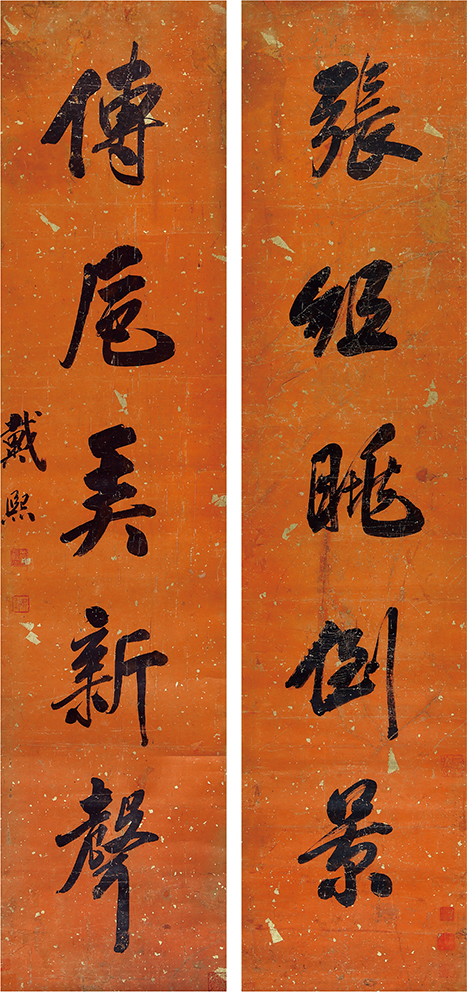 張組眺倒景
傳卮美新聲
戴熙